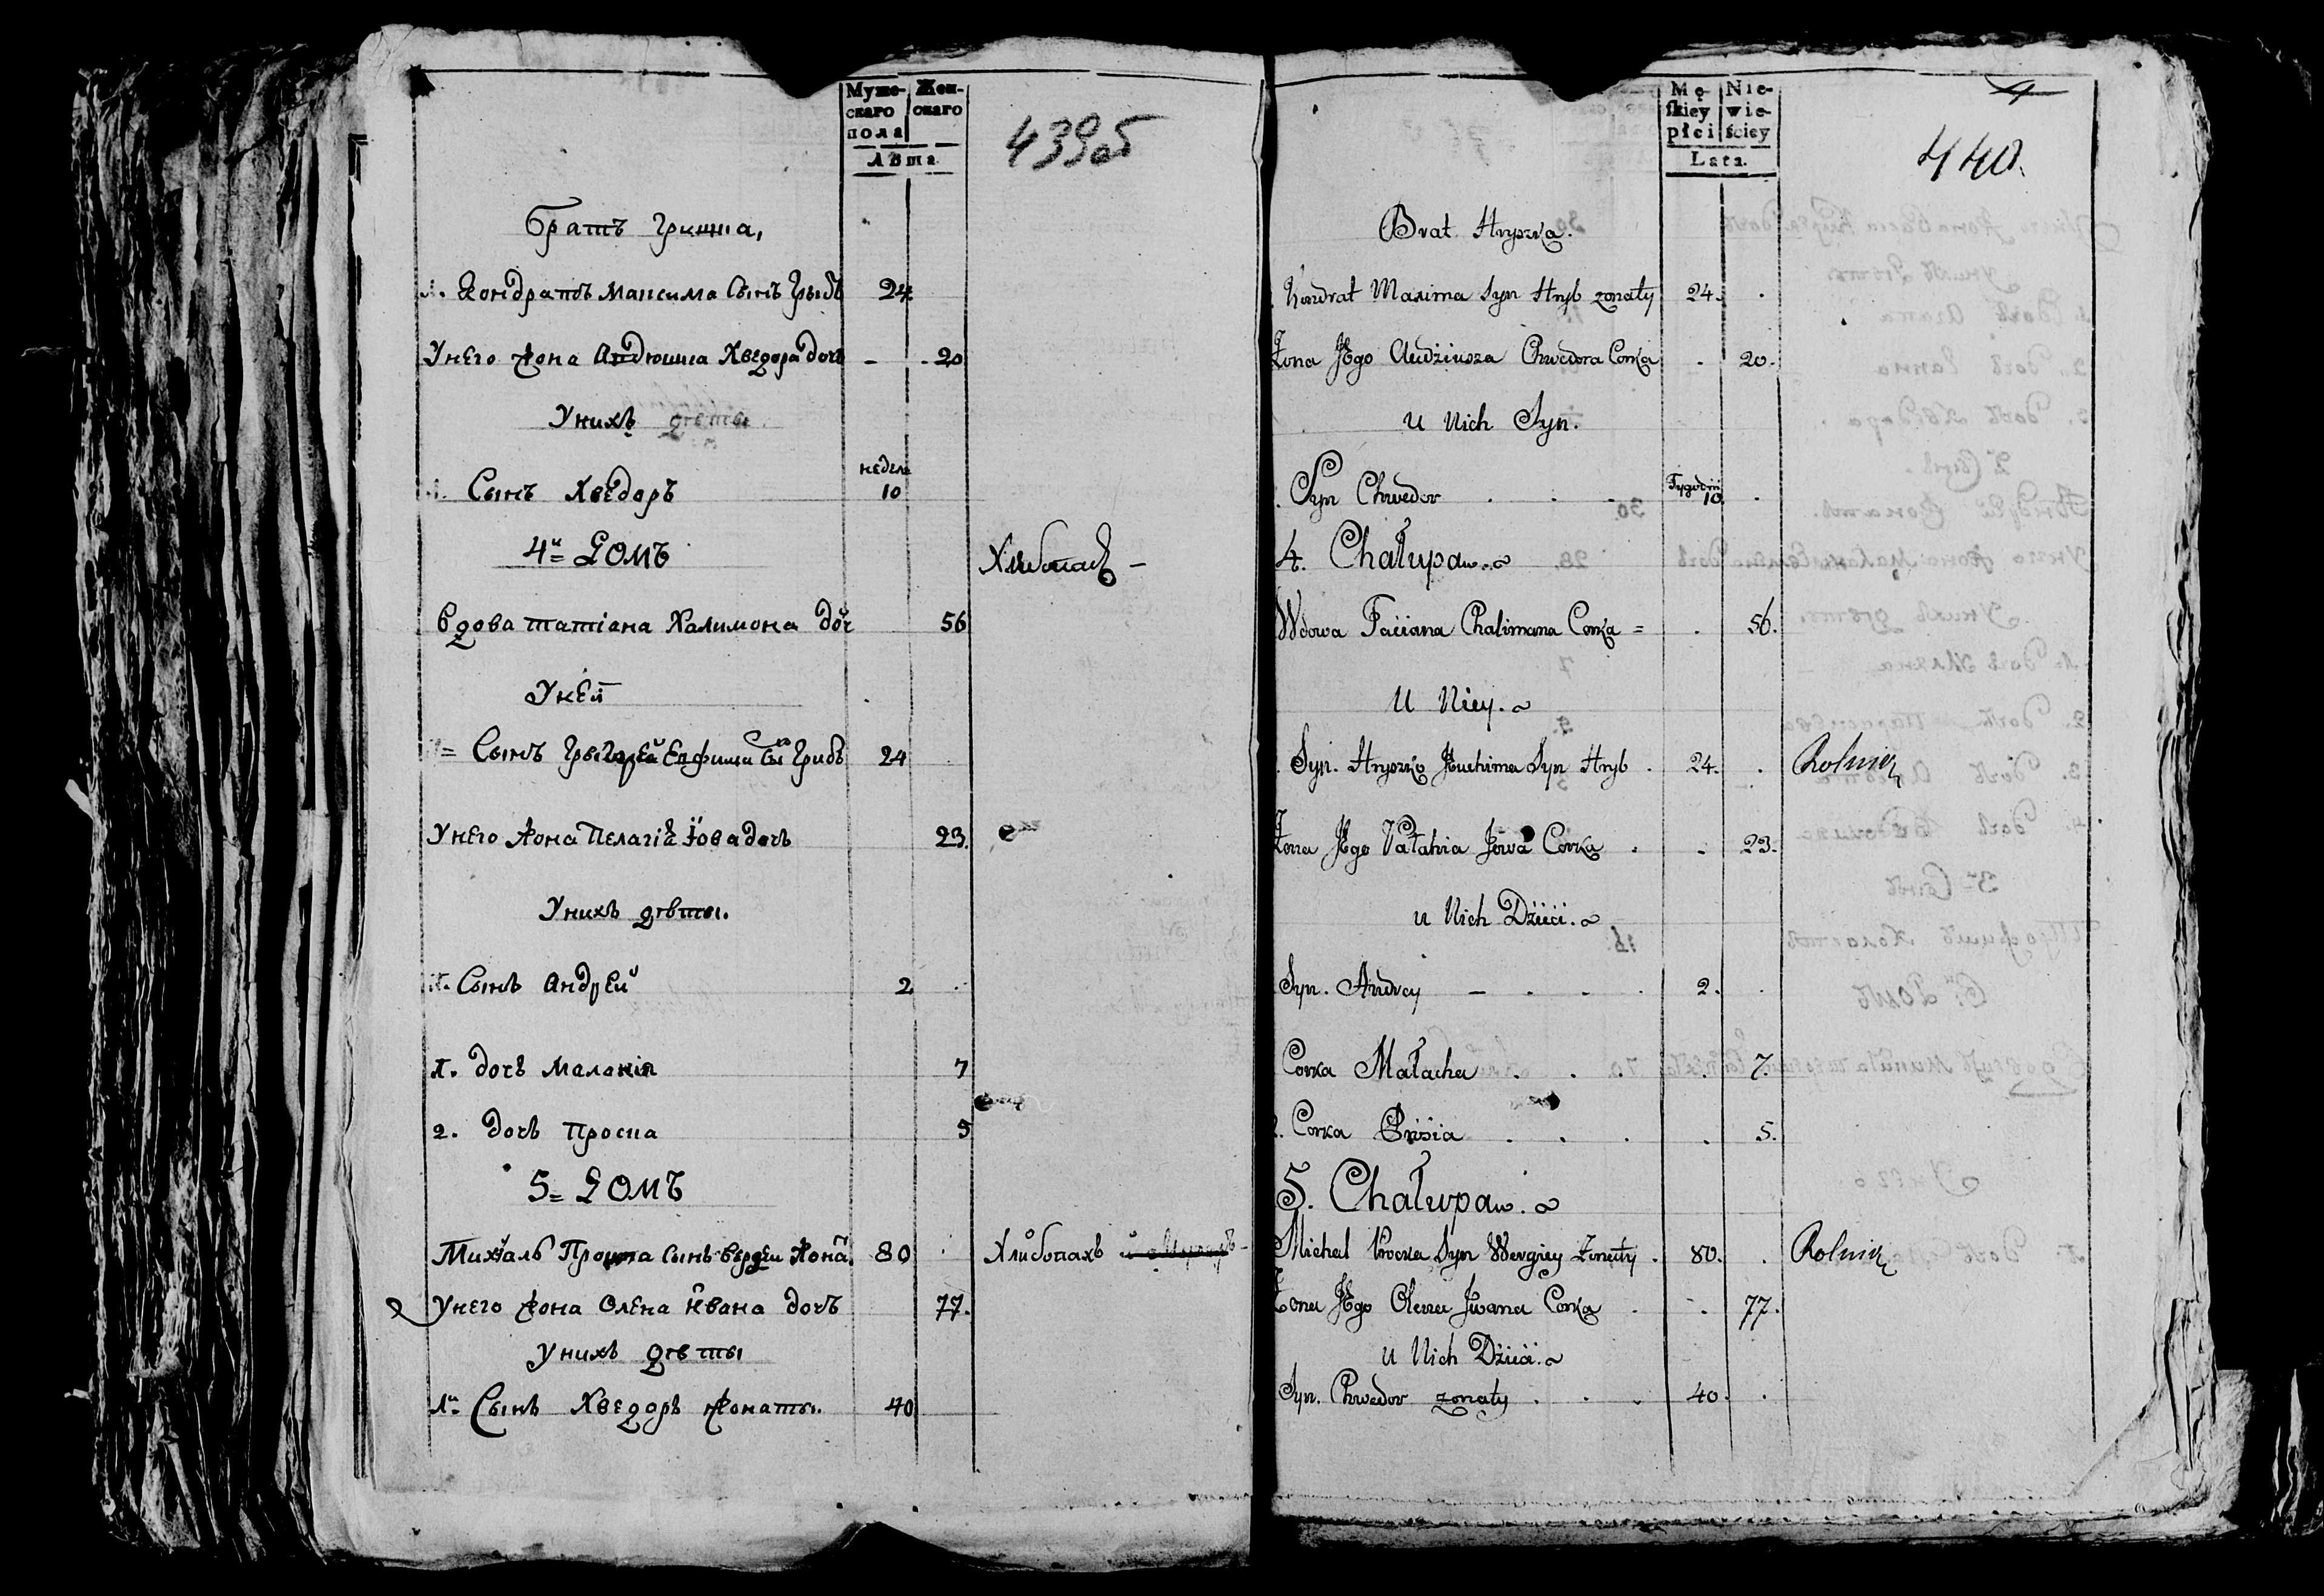 Муже-
скаго
пола
Жен-
скаго
Лѣта
439об
Братъ Гришка,
1. Кондратъ Максима Сынъ Грыбъ 24
Унего жона Авдюшка Хведора дочь - - 20
Унихъ дѣти
1. Сынъ Хведоръ недель 10
4й= Домъ Хлибопахъ -
Вдова татіана Халимона доч 56
Уней
1= Сынъ Грыгорей Евфима Сы Грибъ 24
Унего Жона Пелагіа Іова дочь 23.
Унихъ дѣты.
1. Сынъ Андрей 2
1. дочь Маланія 7
2. дочь Проска 5
5= Домъ
Михаль Процка сынъ Вергеи Жона. 80 Хлибопахъ
Унего жона Олена Ивана дочь 77.
Унихъ дѣты
1й Сынъ Хведоръ жонаты. 40
Mę-
skiey
płci
Nie-
wie-
ściey
Lata.
4
440.
Brat Hryszka.
Kondrat Maxima Syn Hryb zonaty 24.
Zona Jego Audziusza Chwedora Corka 20.
u Nich Syn.
Syn Chwedor Tygodni 10.
4. Chałupa
Wdowa Taciana Chalimona Corka = 56.
U Niey.
Syn. Hryszko Jeuchima Syn Hryb 24. Rolnik
Zona Jego Pałahia Jowa Corka 23.
u Nich Dzieci.
Syn. Andrey 2.
Corka Małacha 7.
2. Corka Prosia 5.
5. Chałupa
Michal Procka Syn Wergiey Zonaty 80. Rolnik
Zona Jego Olena Jwana Corka 77.
u Nich Dzieci.
Syn. Chwedor zonaty 40.